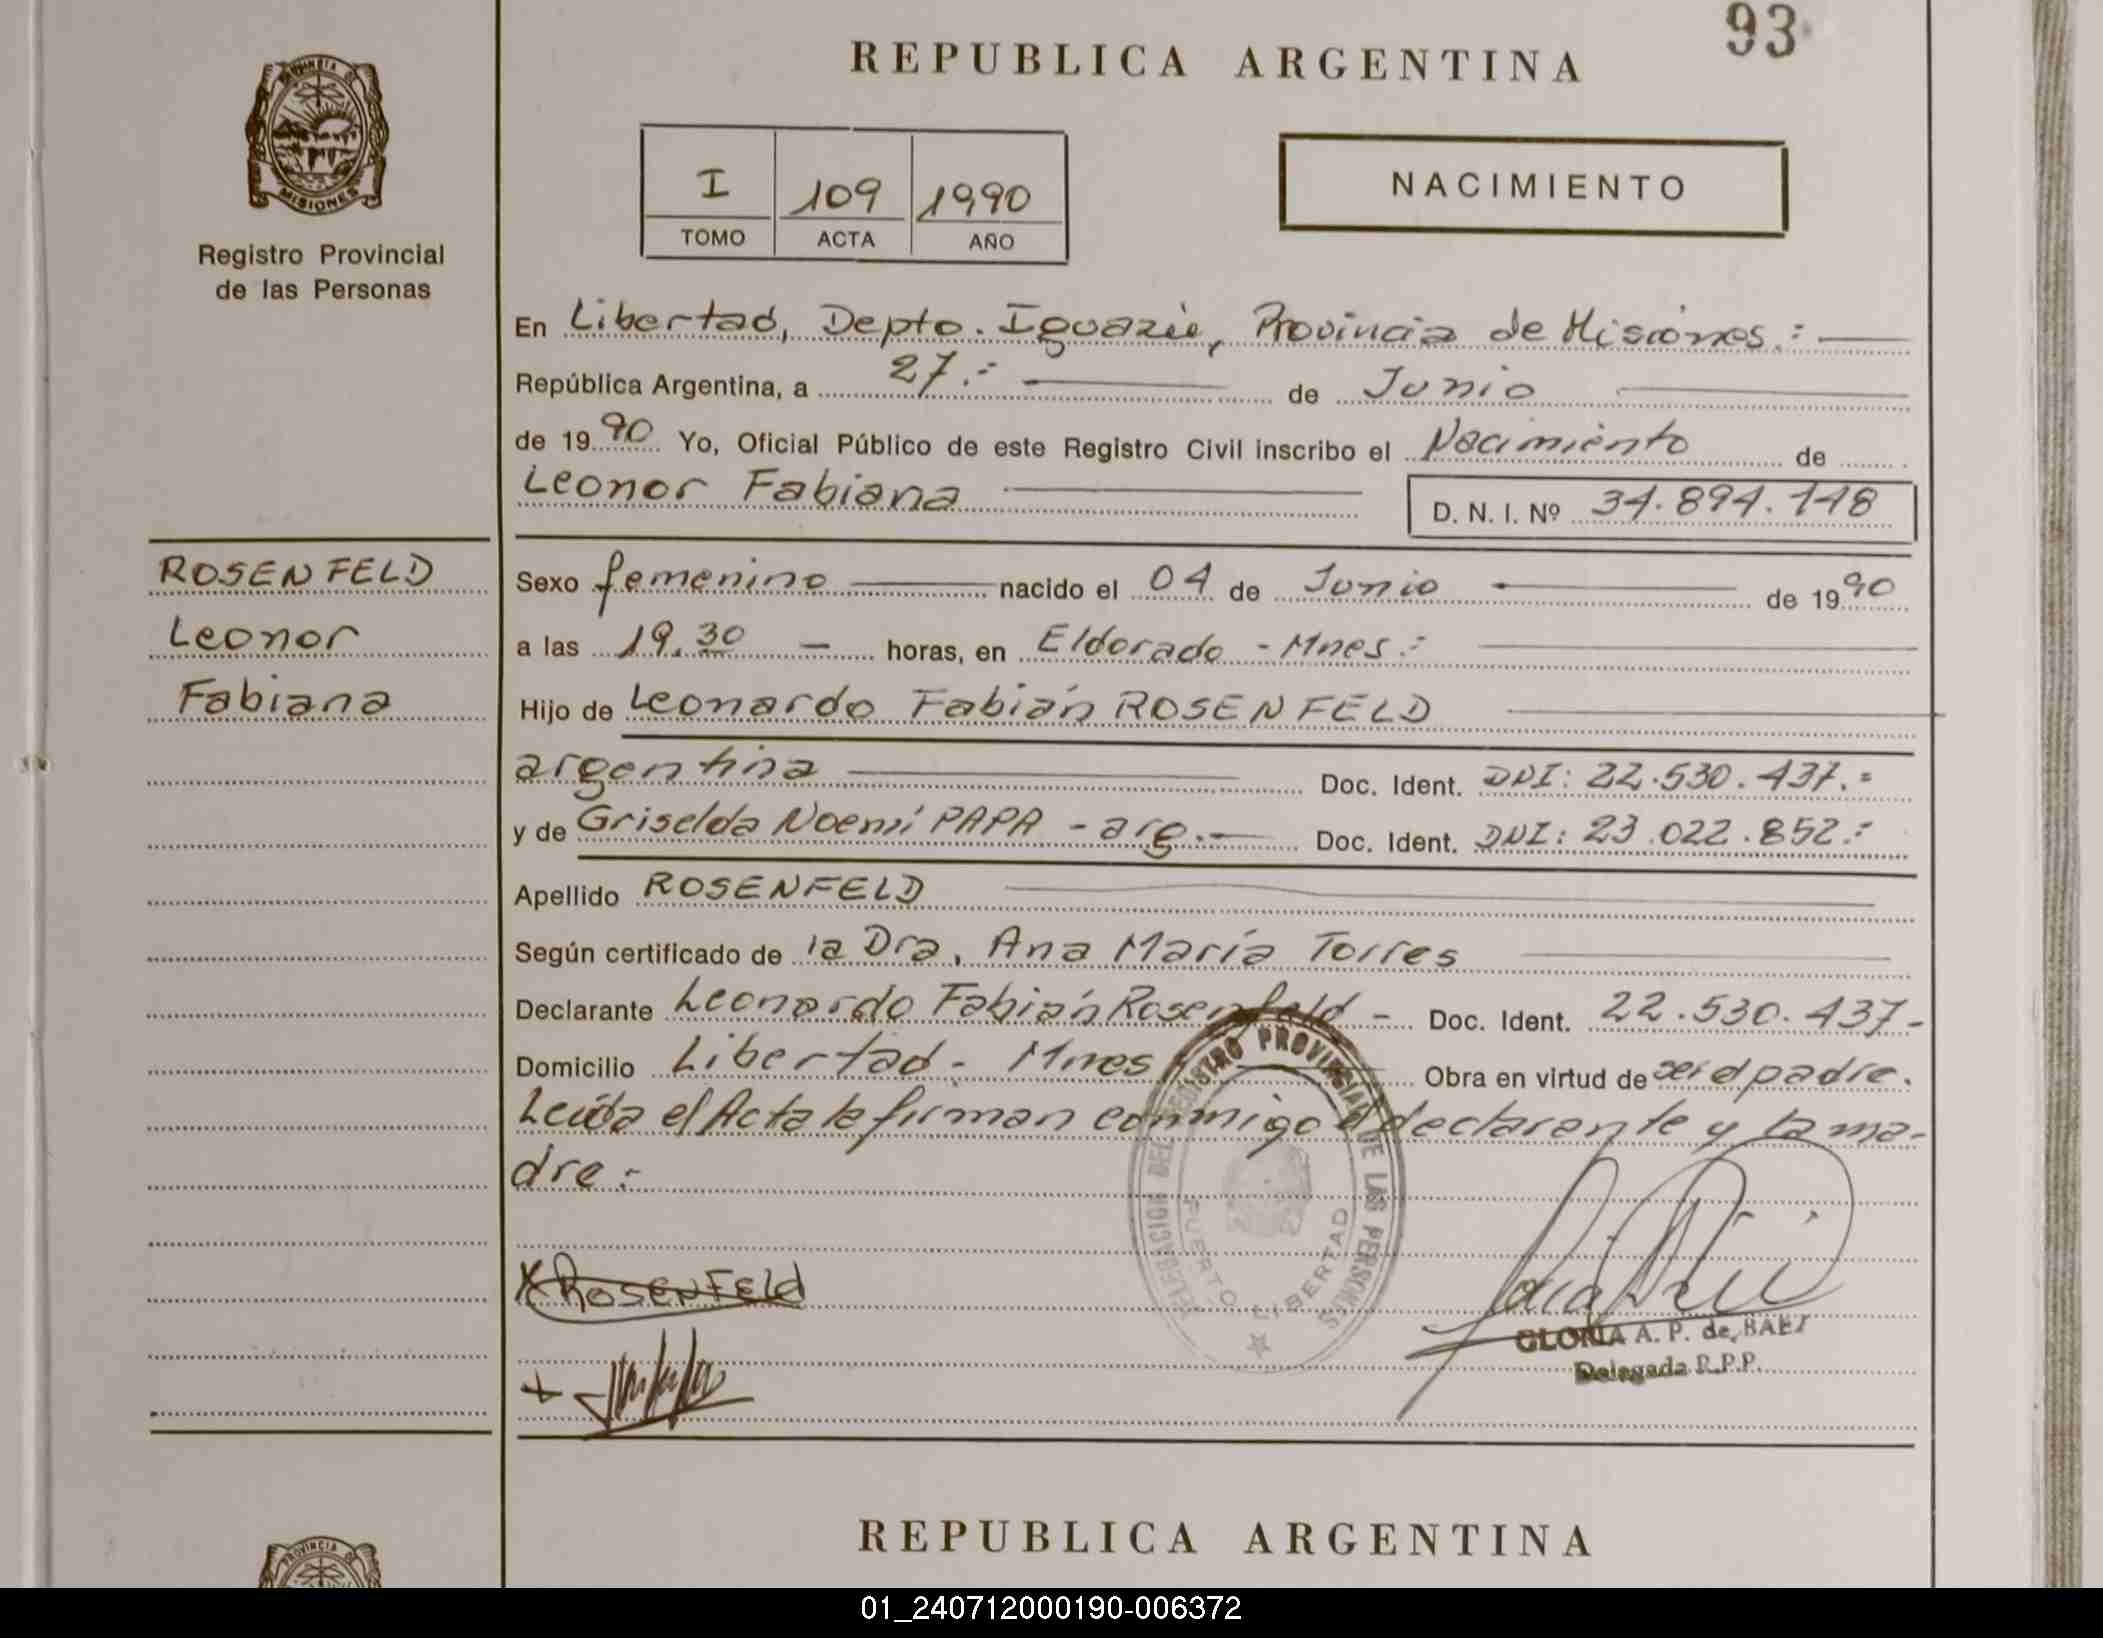 93
REPUBLICA ARGENTINA
PROVINCIA DE
MISIONES
Registro Provincial
de las Personas
I 109 1990
TOMO ACTA AÑO
NACIMIENTO
En Libertad, Depto. Iguazú, Provincia de Misiones.:
República Argentina, a 27.- de Junio
de 1990 Yo, Oficial Público de este Registro Civil inscribo el Nacimiento de
Leonor Fabiana D. N. I. Nº 34.894.118
ROSENFELD
Leonor
Fabiana
Sexo femenino nacido el 04 de Junio de 1990
a las 19.30 — horas, en Eldorado - Mnes.:
Hijo de Leonardo Fabián ROSENFELD
argentina Doc. Ident. DNI: 22.530.437.=
y de Griselda Noemí PAPA - arg.- Doc. Ident. DNI: 23.022.852.:
Apellido ROSENFELD
Según certificado de la Dra. Ana María Torres
Declarante Leonardo Fabián Rosenfeld - Doc. Ident. 22.530.437-
Domicilio Libertad - Mnes Obra en virtud de ser el padre.
Leída el Acta la firman conmigo el declarante y la ma-
dre.-
DELEGACION DEL REGISTRO PROVINCIAL DE LAS PERSONAS
PUERTO LIBERTAD
X Rosenfeld
GLORIA A. P. de BAEZ
Delegada R.P.P.
REPUBLICA ARGENTINA
PROVINCIA DE
01_240712000190-006372